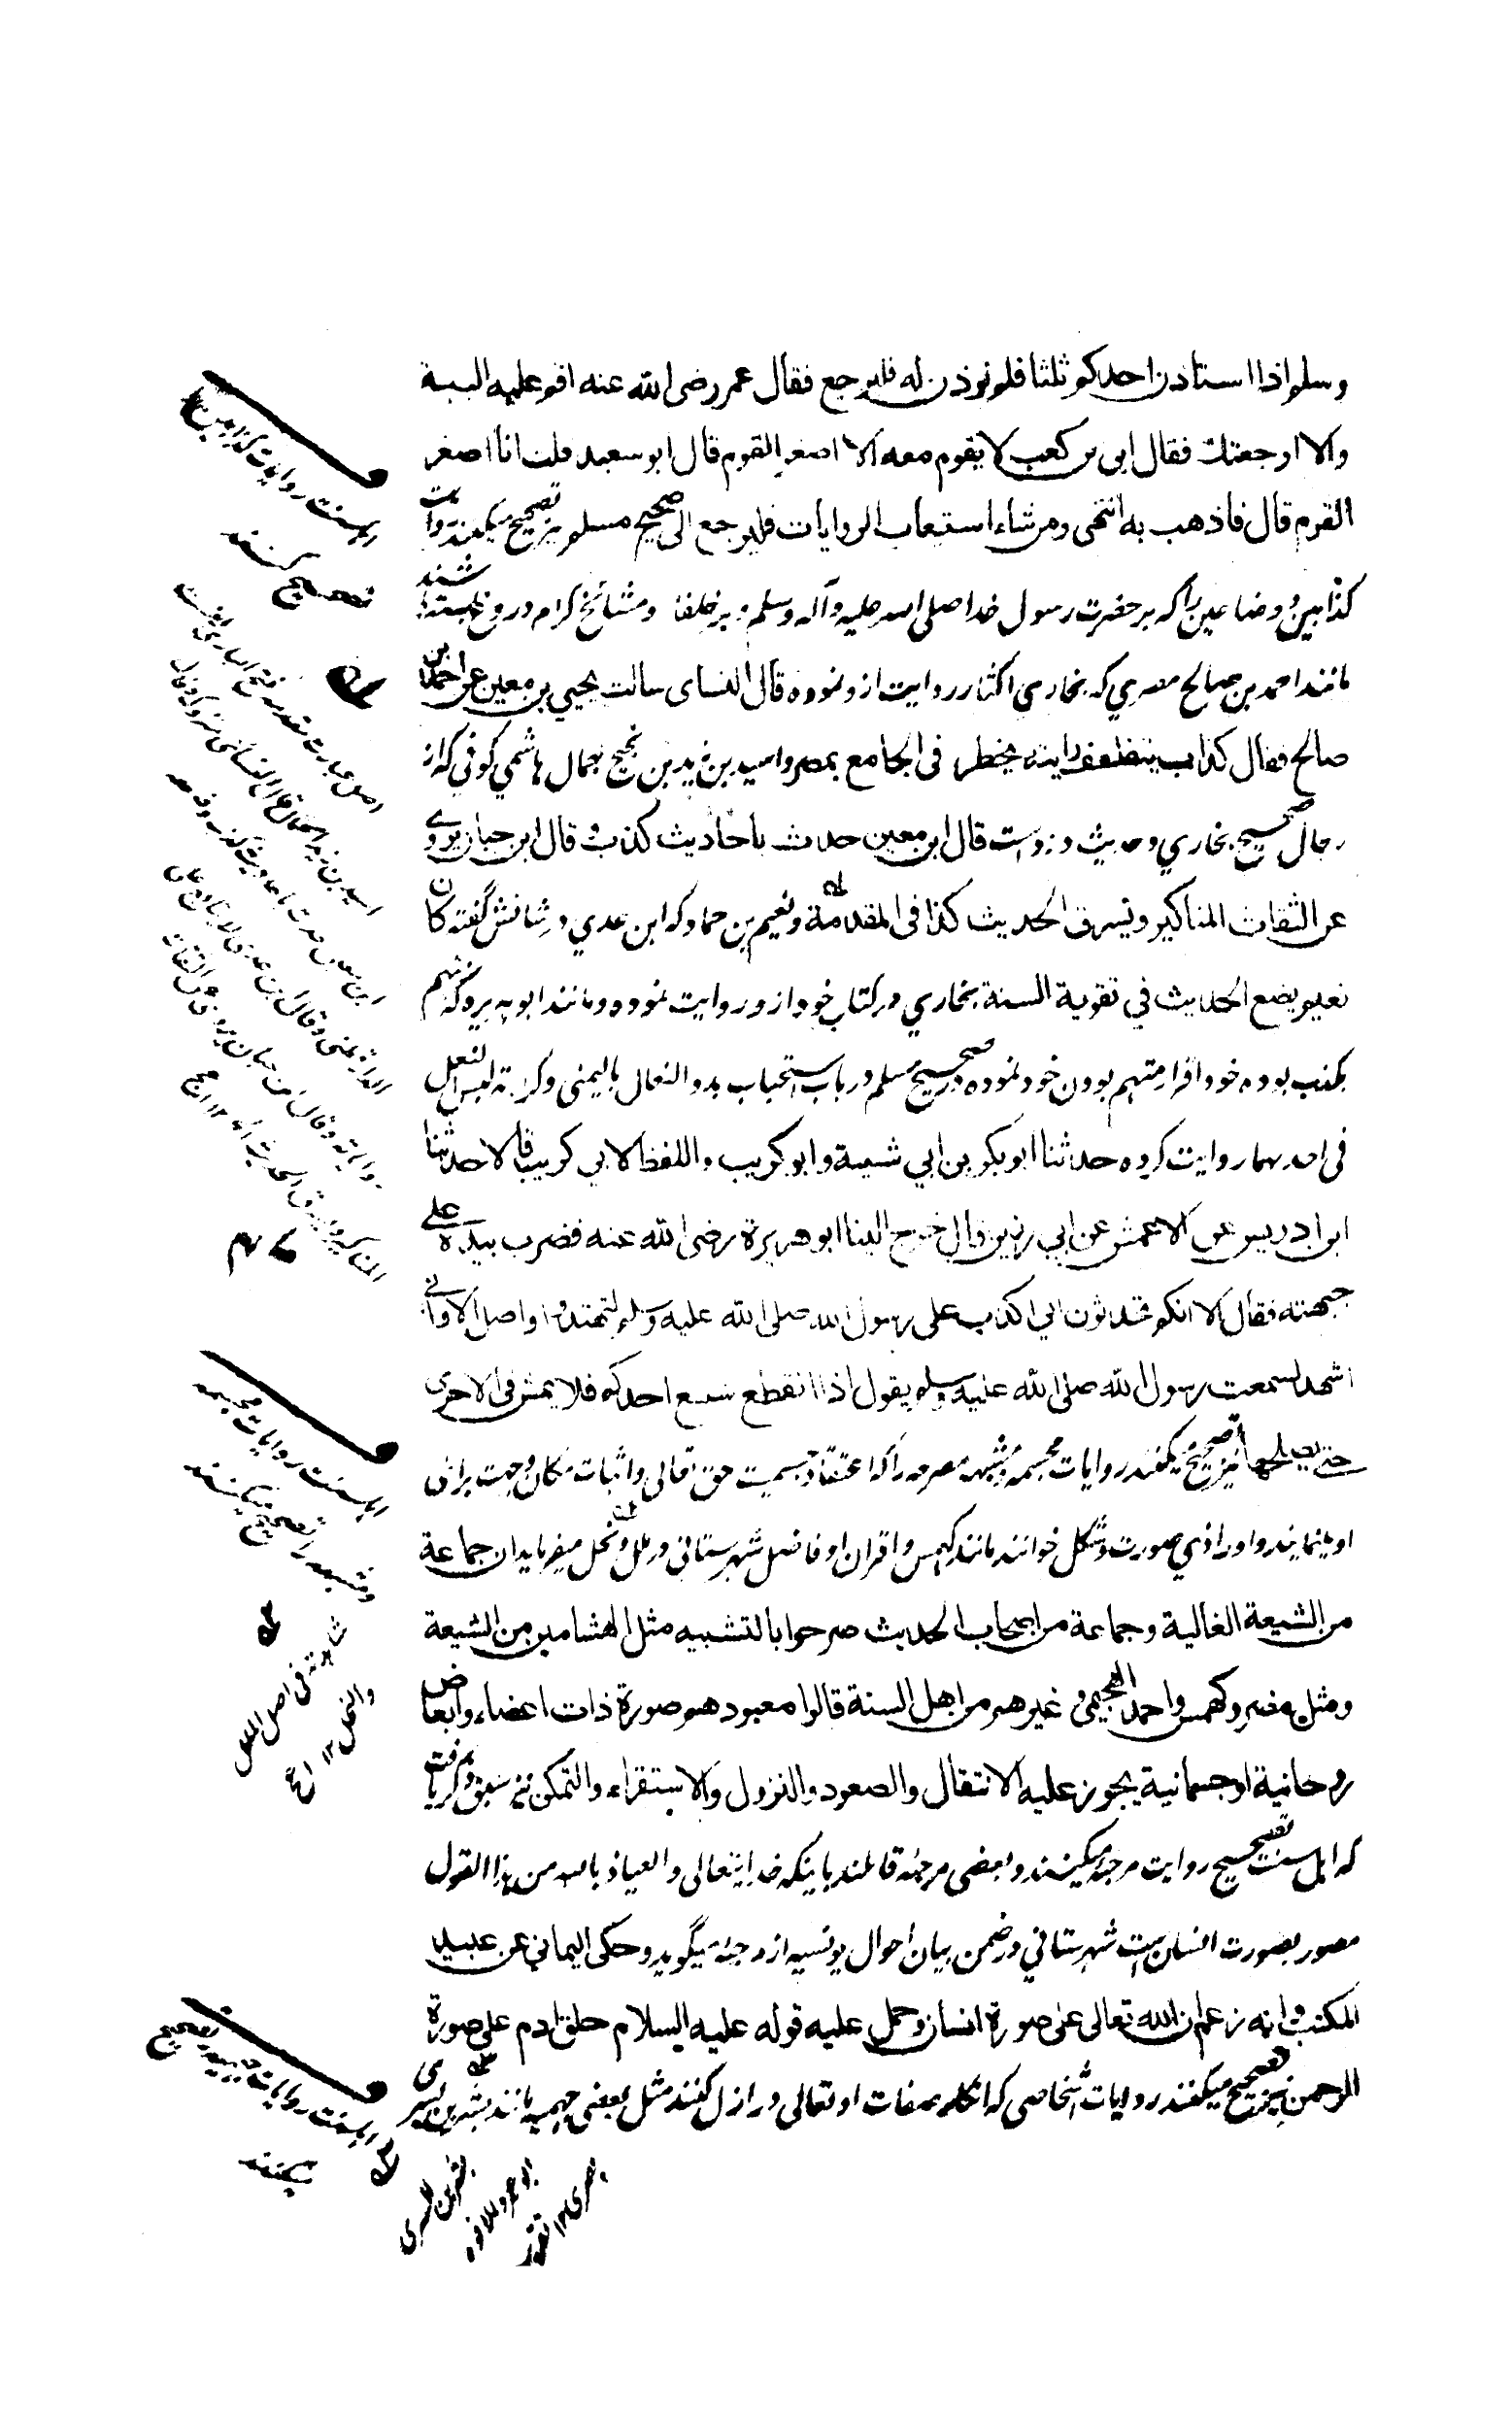 وسلم اذا استاذن احدكم ثلثا فلم يؤذن له فليرجع فقال عمر رضى الله عنه اقم عليه البينة
والا اوجعتك فقال ابى بن كعب لا يقوم معه الا اصغر القوم قال ابو سعيد قلت انا اصغر
القوم قال فاذهب به انتهى ومن شاء استيعاب الروايات فليرجع الى صحيح مسلم نيز تصحيح ميكنند روايات
كذابين و وضاعين را كه بر حضرت رسول خدا صلى الله عليه وآله وسلم و بر خلفا و مشائخ كرام دروغ بسته باشند
مانند احمد بن صالح مصري كه بخاري اكثار روايت ازو نموده قال النساى سالت يحيي بن معين عن احمد بن
صالح فقال كذاب يتفلسف رايته يخطر فى الجامع بمصر واسيد بن زيد بن نجيح جمال هاشمي كوفي كه از
رجال صحيح بخاري و حديث دزد است قال ابن معين حدث باحاديث كذب و قال ابن حبان يروي
عن الثقات المناكير ويسرق الحديث كذا فى المقدمة ونعيم بن حماد كه ابن عدي در شانش گفته كان
نعيم يضع الحديث في تقوية السنة بخاري در كتاب خود ازو روايت نموده و مانند ابو هريره كه متهم
بكذب بوده خود اقرار متهم بودن خود نموده در صحيح مسلم در باب استحباب بدو النعال باليمنى وكراهة لبس النعل
فى احدهما روايت كرده حدثنا ابو بكر بن ابي شيبة وابو كريب واللفظ لابي كريب قالا حدثنا
ابن ادريس عن الاعمش عن ابي رزين قال خرج الينا ابو هريرة رضى الله عنه فضرب بيده على
جبهته فقال الا انكم تحدثون اني اكذب على رسول الله صلى الله عليه وسلم لتهتدوا واضل الا واني
اشهد لسمعت رسول الله صلى الله عليه وسلم يقول اذا انقطع شسع احدكم فلا يمش فى الاخرى
حتى يصلحها نيز تصحيح ميكنند روايات مجسمه و مشبهه مصرحه را كه اعتقاد جسميت حق تعالى و اثبات مكان و جهت براى
او مينمايند و او را ذي صورت و شكل خوانند مانند كهمس و اقران او فاضل شهرستاني در ملل و نحل ميفرمايد ان جماعة
من الشيعة الغالية وجماعة من اصحاب الحديث صرحوا بالتشبيه مثل الهشاميين من الشيعة
ومثل مضر وكهمس واحمد الهجيمي وغيرهم من اهل السنة قالوا معبودهم صورة ذات اعضاء وابعاض
روحانية او جسمانية يجوز عليه الانتقال والصعود والنزول والاستقراء والتمكن نيز سبق ذكر يافت
كه اهل سنت تصحيح روايت مرجئه ميكنند و بعضى مرجئه قائلند باينكه خدايتعالى والعياذ بالله من هذا القول
مصور بصورت انسان ست شهرستاني در ضمن بيان احوال يونسيه از مرجئه ميگويد وحكى اليماني عن عبيد
المكتب انه زعم ان الله تعالى على صورة انسان وحمل عليه قوله عليه السلام خلق ادم على صورة
الرحمن نيز تصحيح ميكنند روايات اشخاصى كه انكار صفات او تعالى در ازل كنند مثل بعضى جهميه مانند بشر بن السرى
اهل سنت روايات كذابين را
تصحيح كنند
اهل سنت روايات مجسمه
و مشبهه را تصحيح ميكنند
والنحل ١٢
اهل سنت روايات جهميه را تصحيح
ميكنند
بشر بن السرى
ابو عمرو الافوه
بصرى ١٢ تقريب